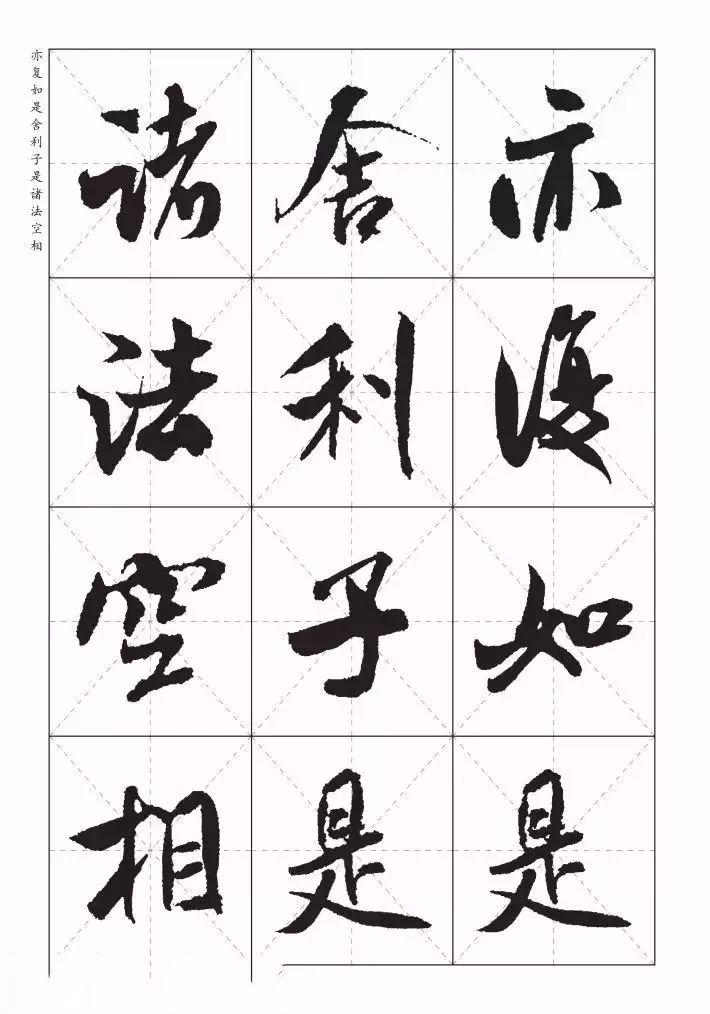 亦复如是舍利子是诸法空相
亦復如是
舎利子是
諸法空相